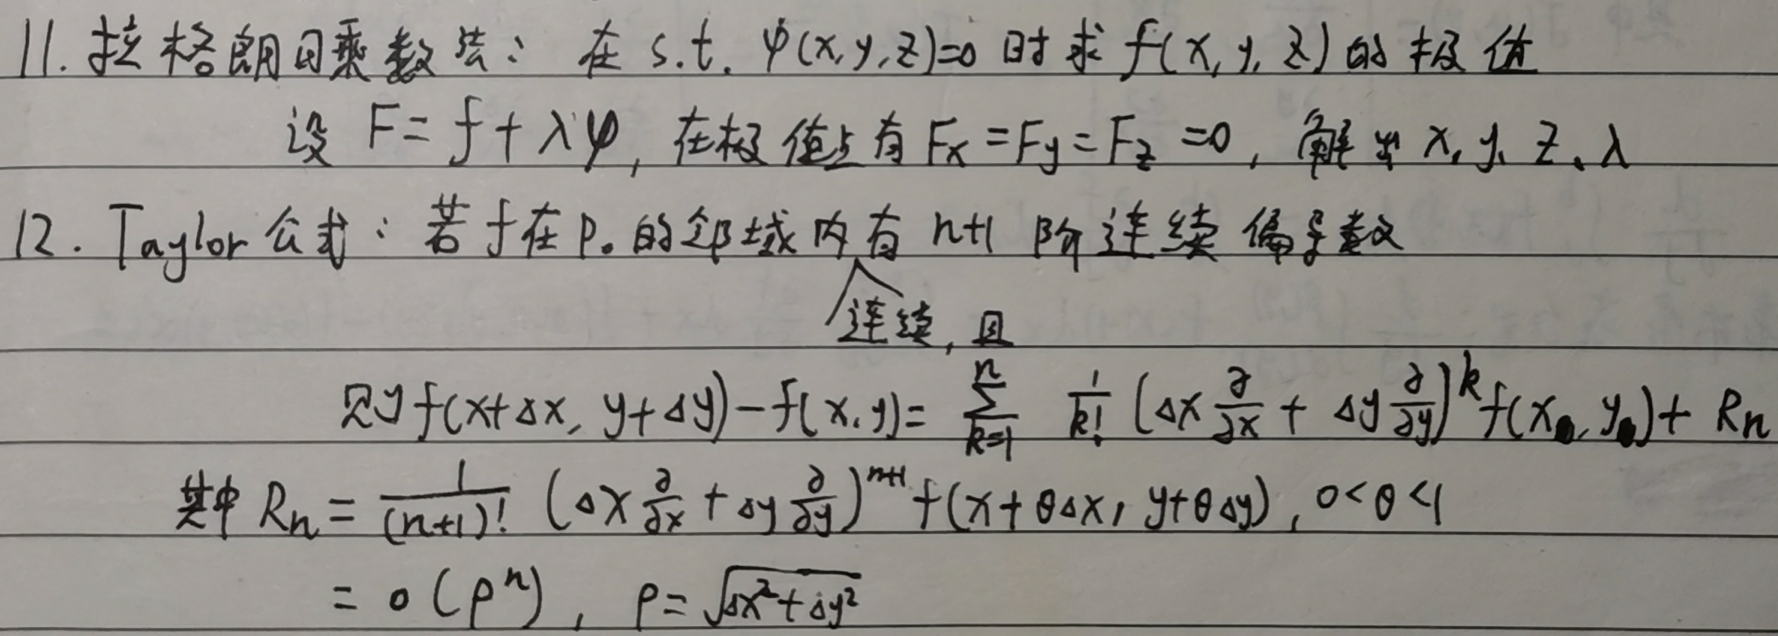 11. 拉格朗日乘数法: 在 s.t. φ(x,y,z)=0 时求 f(x,y,z) 的极值
设 F=f+λφ, 在极值点有 Fx=Fy=Fz=0, 解出 x,y,z,λ
12. Taylor公式: 若f在P₀的邻域内有 n+1 阶连续偏导数
连续,且
则f(x+Δx, y+Δy)-f(x,y)= ∑_{k=1}^{n} 1/k! (Δx ∂/∂x + Δy ∂/∂y)^k f(x, y)+ Rn
其中 Rn = 1/(n+1)! (Δx ∂/∂x + Δy ∂/∂y)^{n+1} f(x+θΔx, y+θΔy), 0<θ<1
= o(ρ^n), ρ=√(Δx²+Δy²)